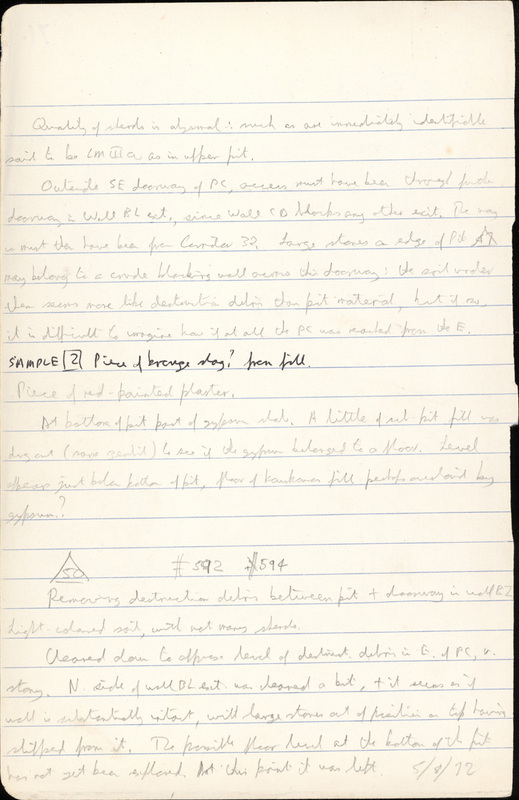 Quality of sherds is abysmal: such as are immediately identifiable
said to be LM III a as in upper pit.
Outside SE doorway of PC, access must have been through
doorway in Wall BL ext., since Wall CD blocks any other exit. The way
in must then have been from Corridor 32. Large stones on edge of Pit
may belong to a crude blocking wall across this doorway: the soil under
them seems more like destruction debris than pit material, but if so
it is difficult to imagine how if at all the PC was reached from the E.
SAMPLE [2] Piece of bronze slag? from fill.
Piece of red-painted plaster.
At bottom of pit part of gypsum slab. A little of sub-pit fill was
dug out to see if the gypsum belonged to a floor. Level
appears just below bottom of pit, floor of fill perhaps
gypsum?
50 #592 #594
Removing destruction debris between pit + doorway in wall BL
Light-coloured soil, with not many sherds.
Cleared down to approx level of destruct. debris in E. of PC, v.
stony. N. side of wall BL ext. was cleaned a bit, + it seems as if
wall is substantially intact, with large stones out of position on top having
slipped from it. The possible floor level at the bottom of the pit
has not yet been explored. At this point it was left. 5/8/72